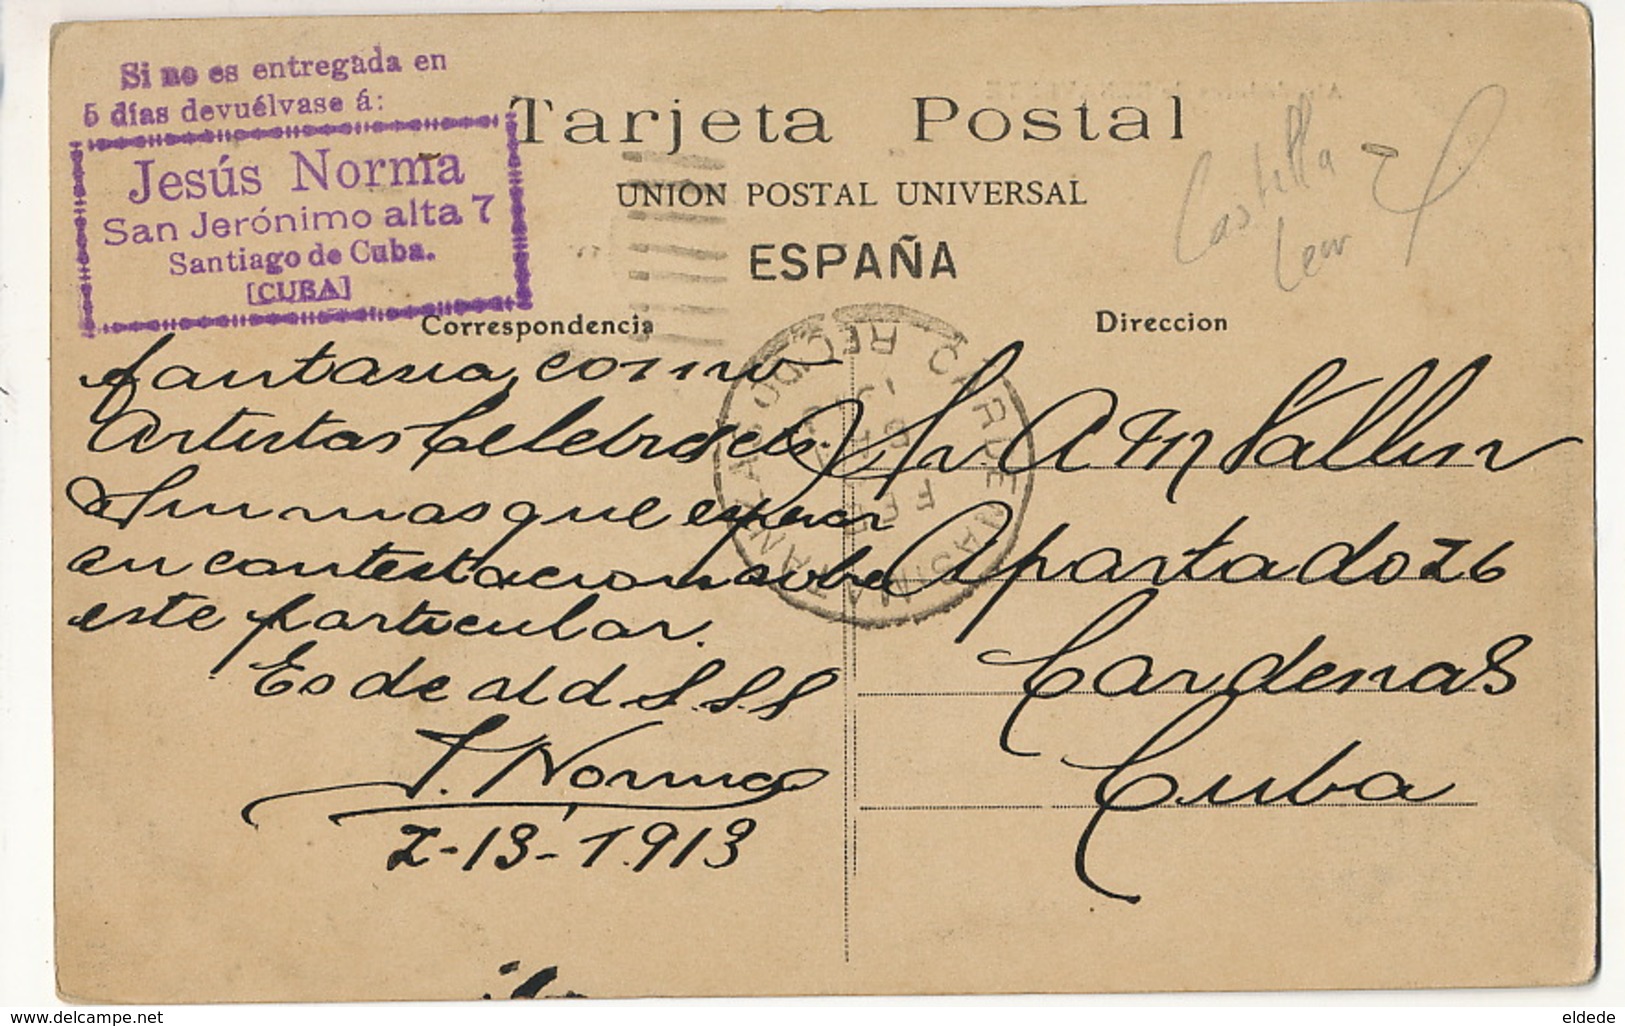 Si no es entregada en
5 días devuélvase á:
Jesús Norma
San Jerónimo alta 7
Santiago de Cuba.
[CUBA]
Tarjeta Postal
UNION POSTAL UNIVERSAL
ESPAÑA
Castilla
Leon
Correspondencia
fantasia, como
Artistas Celebres etc.
Sin mas que esperar
en contestacion sobre
este particular.
Es de ud S.S.S
J. Norma
2-13-1913
Direccion
Sr A M
Apartado 26
Cardenas
Cuba
CARDENAS
REC
FEB
delcampe.net
eldede